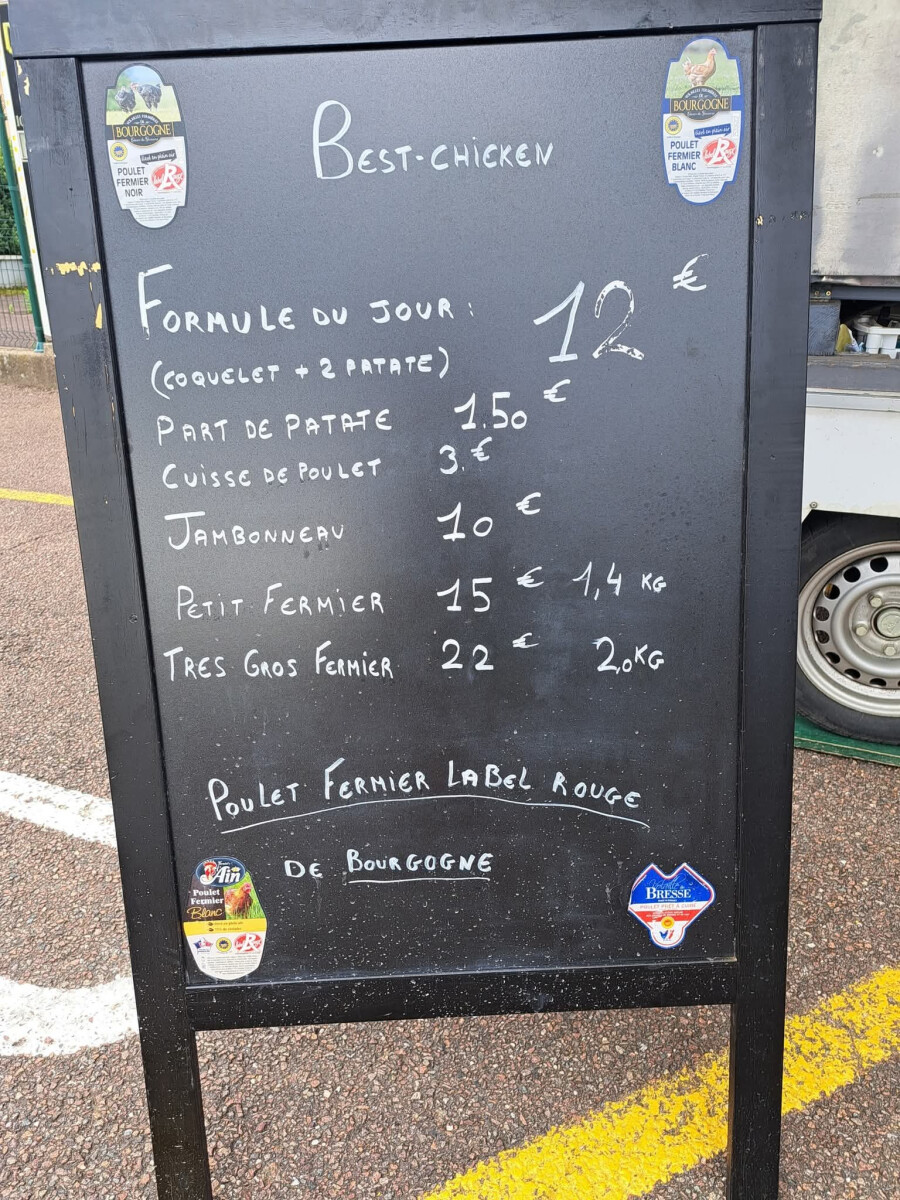 BOURGOGNE
POULET
FERMIER
NOIR
BEST-CHICKEN
BOURGOGNE
POULET
FERMIER
BLANC
FORMULE DU JOUR : 12 €
(COQUELET + 2 PATATE)
PART DE PATATE 1.50 €
CUISSE DE POULET 3.€
JAMBONNEAU 10 €
PETIT FERMIER 15 € 1,4 KG
TRES GROS FERMIER 22 € 2,0KG
POULET FERMIER LABEL ROUGE
DE BOURGOGNE
l'Ain
Poulet
Fermier
Blanc
BRESSE